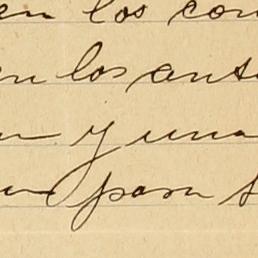 en los con
en los ant
y una
para